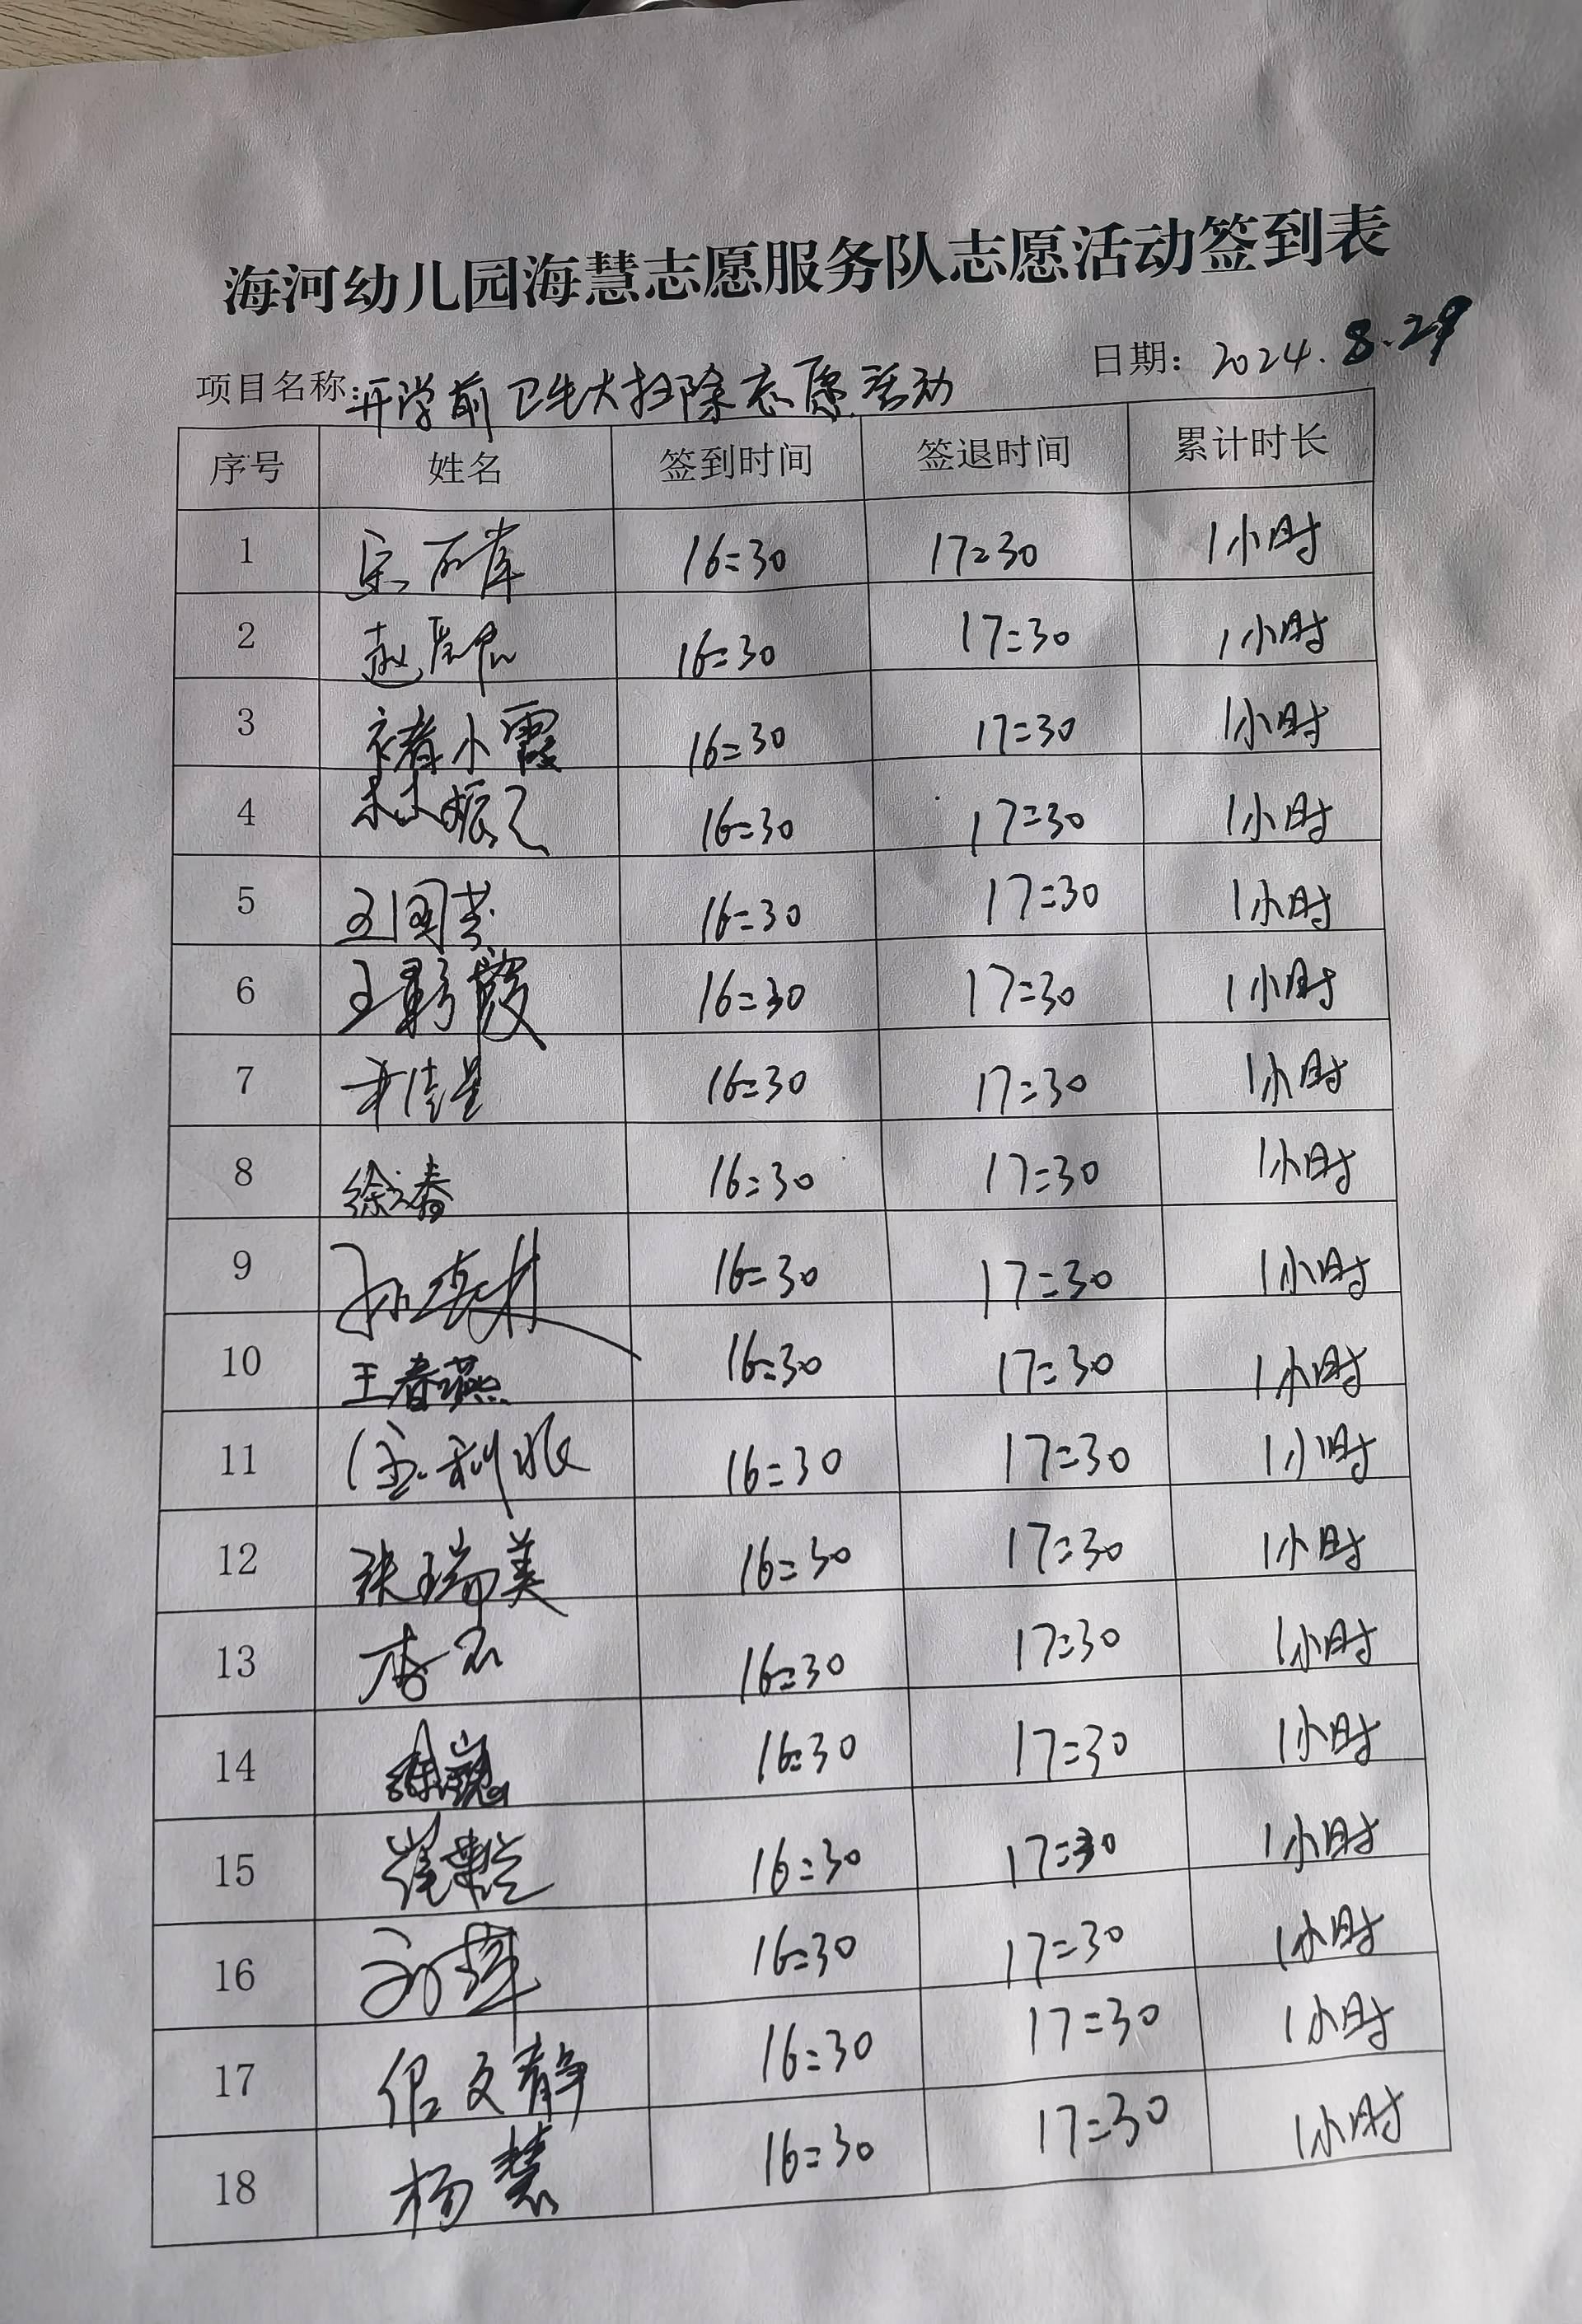 海河幼儿园海慧志愿服务队志愿活动签到表
项目名称:开学前卫生大扫除志愿活动 日期: 2024.8.29
序号 姓名 签到时间 签退时间 累计时长
1 16:30 17:30 1小时
2 赵 16:30 17:30 1小时
3 褚小霞 16:30 17:30 1小时
4 16:30 17:30 1小时
5 王国芸 16:30 17:30 1小时
6 王彩霞 16:30 17:30 1小时
7 16:30 17:30 1小时
8 徐春 16:30 17:30 1小时
9 16:30 17:30 1小时
10 王春燕 16:30 17:30 1小时
11 16:30 17:30 1小时
12 张瑞美 16:30 17:30 1小时
13 李 16:30 17:30 1小时
14 16:30 17:30 1小时
15 16:30 17:30 1小时
16 16:30 17:30 1小时
17 倪文静 16:30 17:30 1小时
18 杨慧 16:30 17:30 1小时